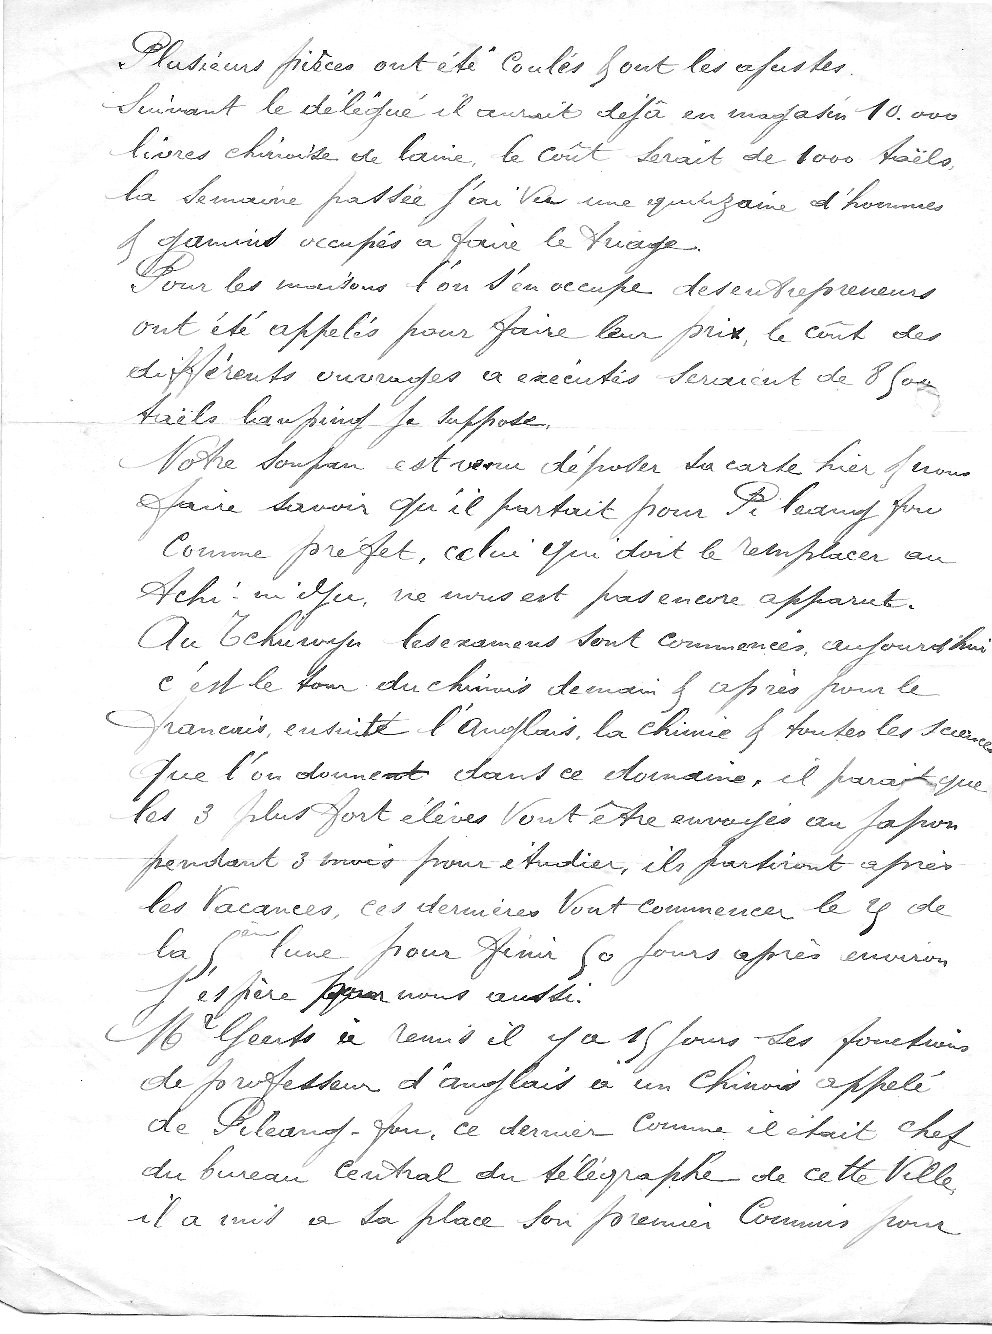 Plusiéurs pièces ont été coulés & ont les ajustes.
Suivant le délégué il aurait déjâ en magasin 10.000
livres chinoise de laine, le coût serait de 1000 taëls,
la semaine passée j'ai vu une quinzaine d'hommes
& gamins occupés a faire le triage.
Pour les maisons l'on s'en occupe des entrepreneurs
ont été appelés pour faire leur prix, le coût des
différents ouvrages a exécutés seraient de 8500
taëls lanping je suppose.
Notre soupan est venu déposer sa carte hier & nous
faire savoir qu'il partait pour Pi leang fou
comme préfet, celui qui doit le remplacer au
Tchi-, ne nous est pas encore apparut.
Au les examens sont commencés, aujourd'hui
c'est le tour du chinois demain & après pour le
francais, ensuite l'Anglais, la chimie & toutes les sciences
que l'on donne dans ce domaine, il parait que
les 3 plus fort élèves vont être envoyés au Japon
pendant 3 mois pour étudier, ils partiront après
les vacances, ces dernières vont commencer le 25 de
la 5ème lune pour finir 50 jours après environ
J'éspère pour nous aussi.
Mr Geerts à remis il y a 15 jours ses fonctions
de professeur d'anglais a un chinois appelé
de Pileang-fou, ce dernier comme il était chef
du bureau central du télégraphe de cette ville,
il a mis a sa place son premier commis pour